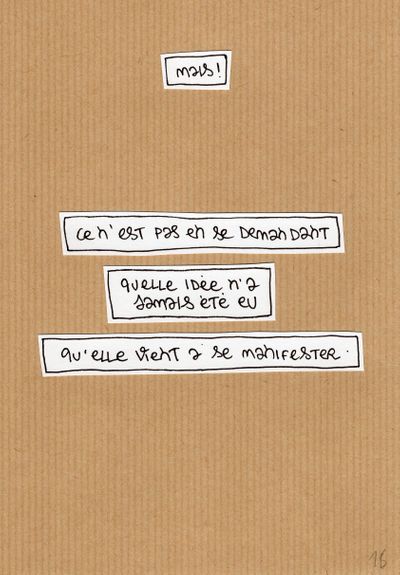 mais !
ce n'est pas en se demandant
quelle idée n'a
jamais été eu
qu'elle vient à se manifester.
16